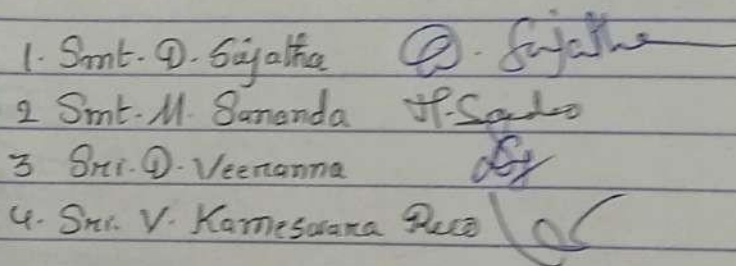 1. Smt. D. Sujatha D. Sujatha
2 Smt. M. Sunanda M.
3 Sri. D. Veeranna
4. Sri. V. Kameswara Rao